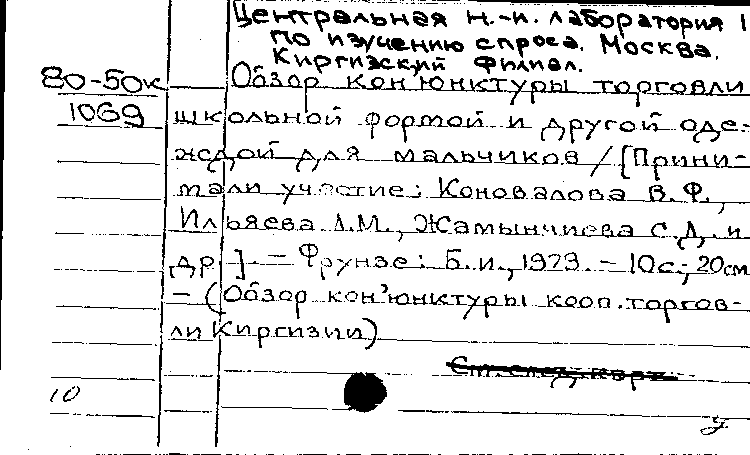 Центральная н.-и. лаборатория
по изучению спроса. Москва.
Киргизский филиал.
80-50к Обзор кон'юнктуры торговли
1069 школьной формой и другой оде-
ждой для мальчиков / [Прини-
мали участие: Коновалова В.Ф.,
Ильяева Л.М., Жамынчиева С.Д. и
др]. - Фрунзе: Б.и., 1979. - 10с.; 20см
- (Обзор кон'юнктуры кооп. торгов-
ли Киргизии)
См. след. карт.
10